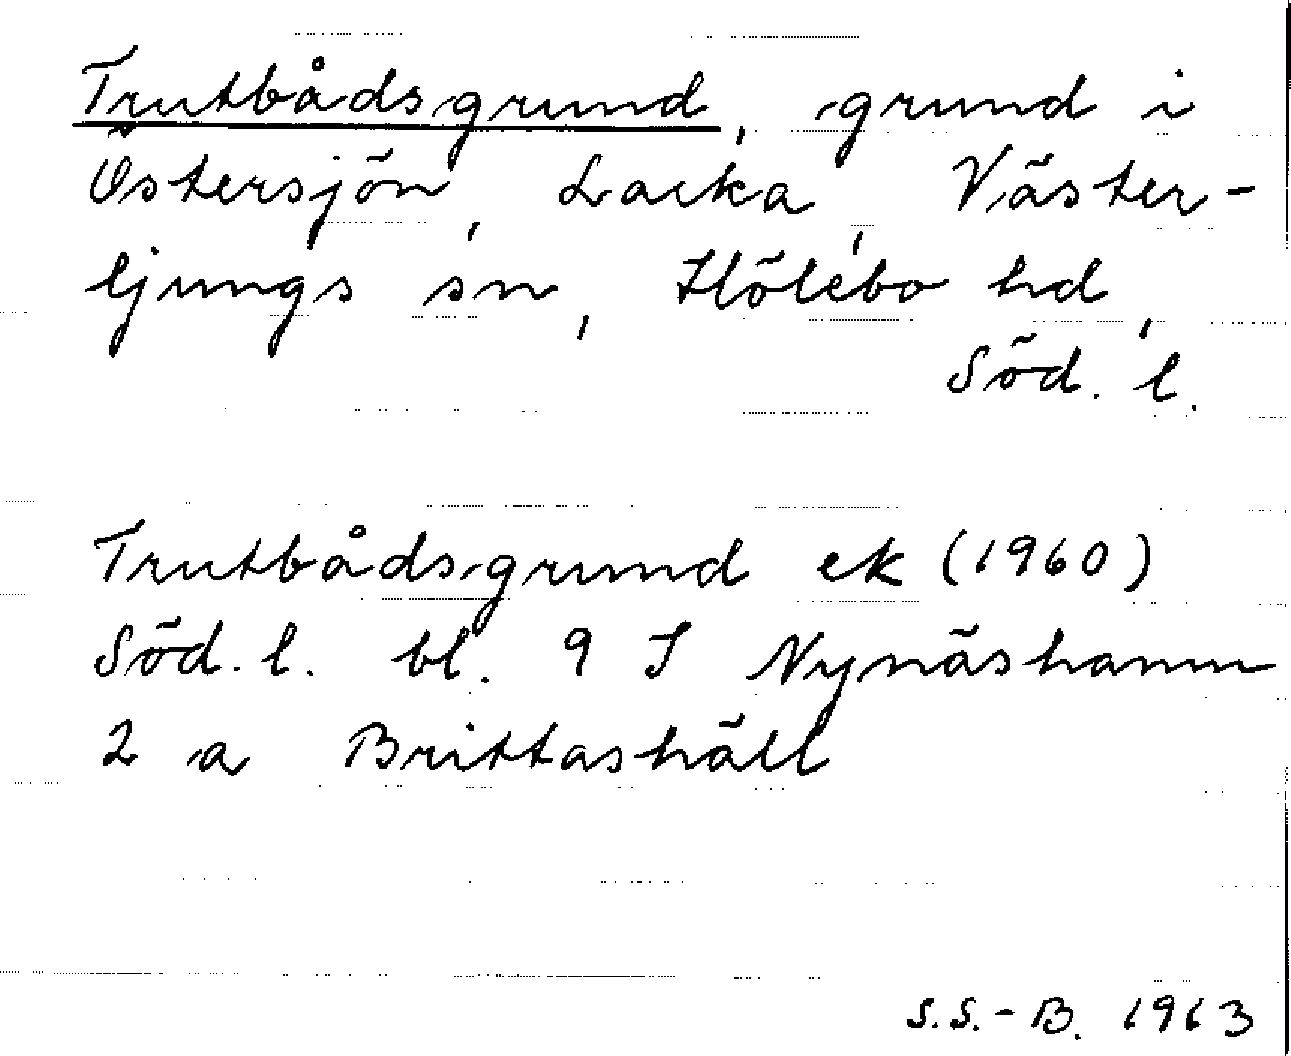 Trutbådsgrund, grund i
Östersjön, Lacka, Väster-
ljungs sn, Hölebo hd,
Söd. l.
Trutbådsgrund ek (1960)
Söd. l. bl. 9 I Nynäshamn
2 a Brittashäll
S.S.-B. 1963